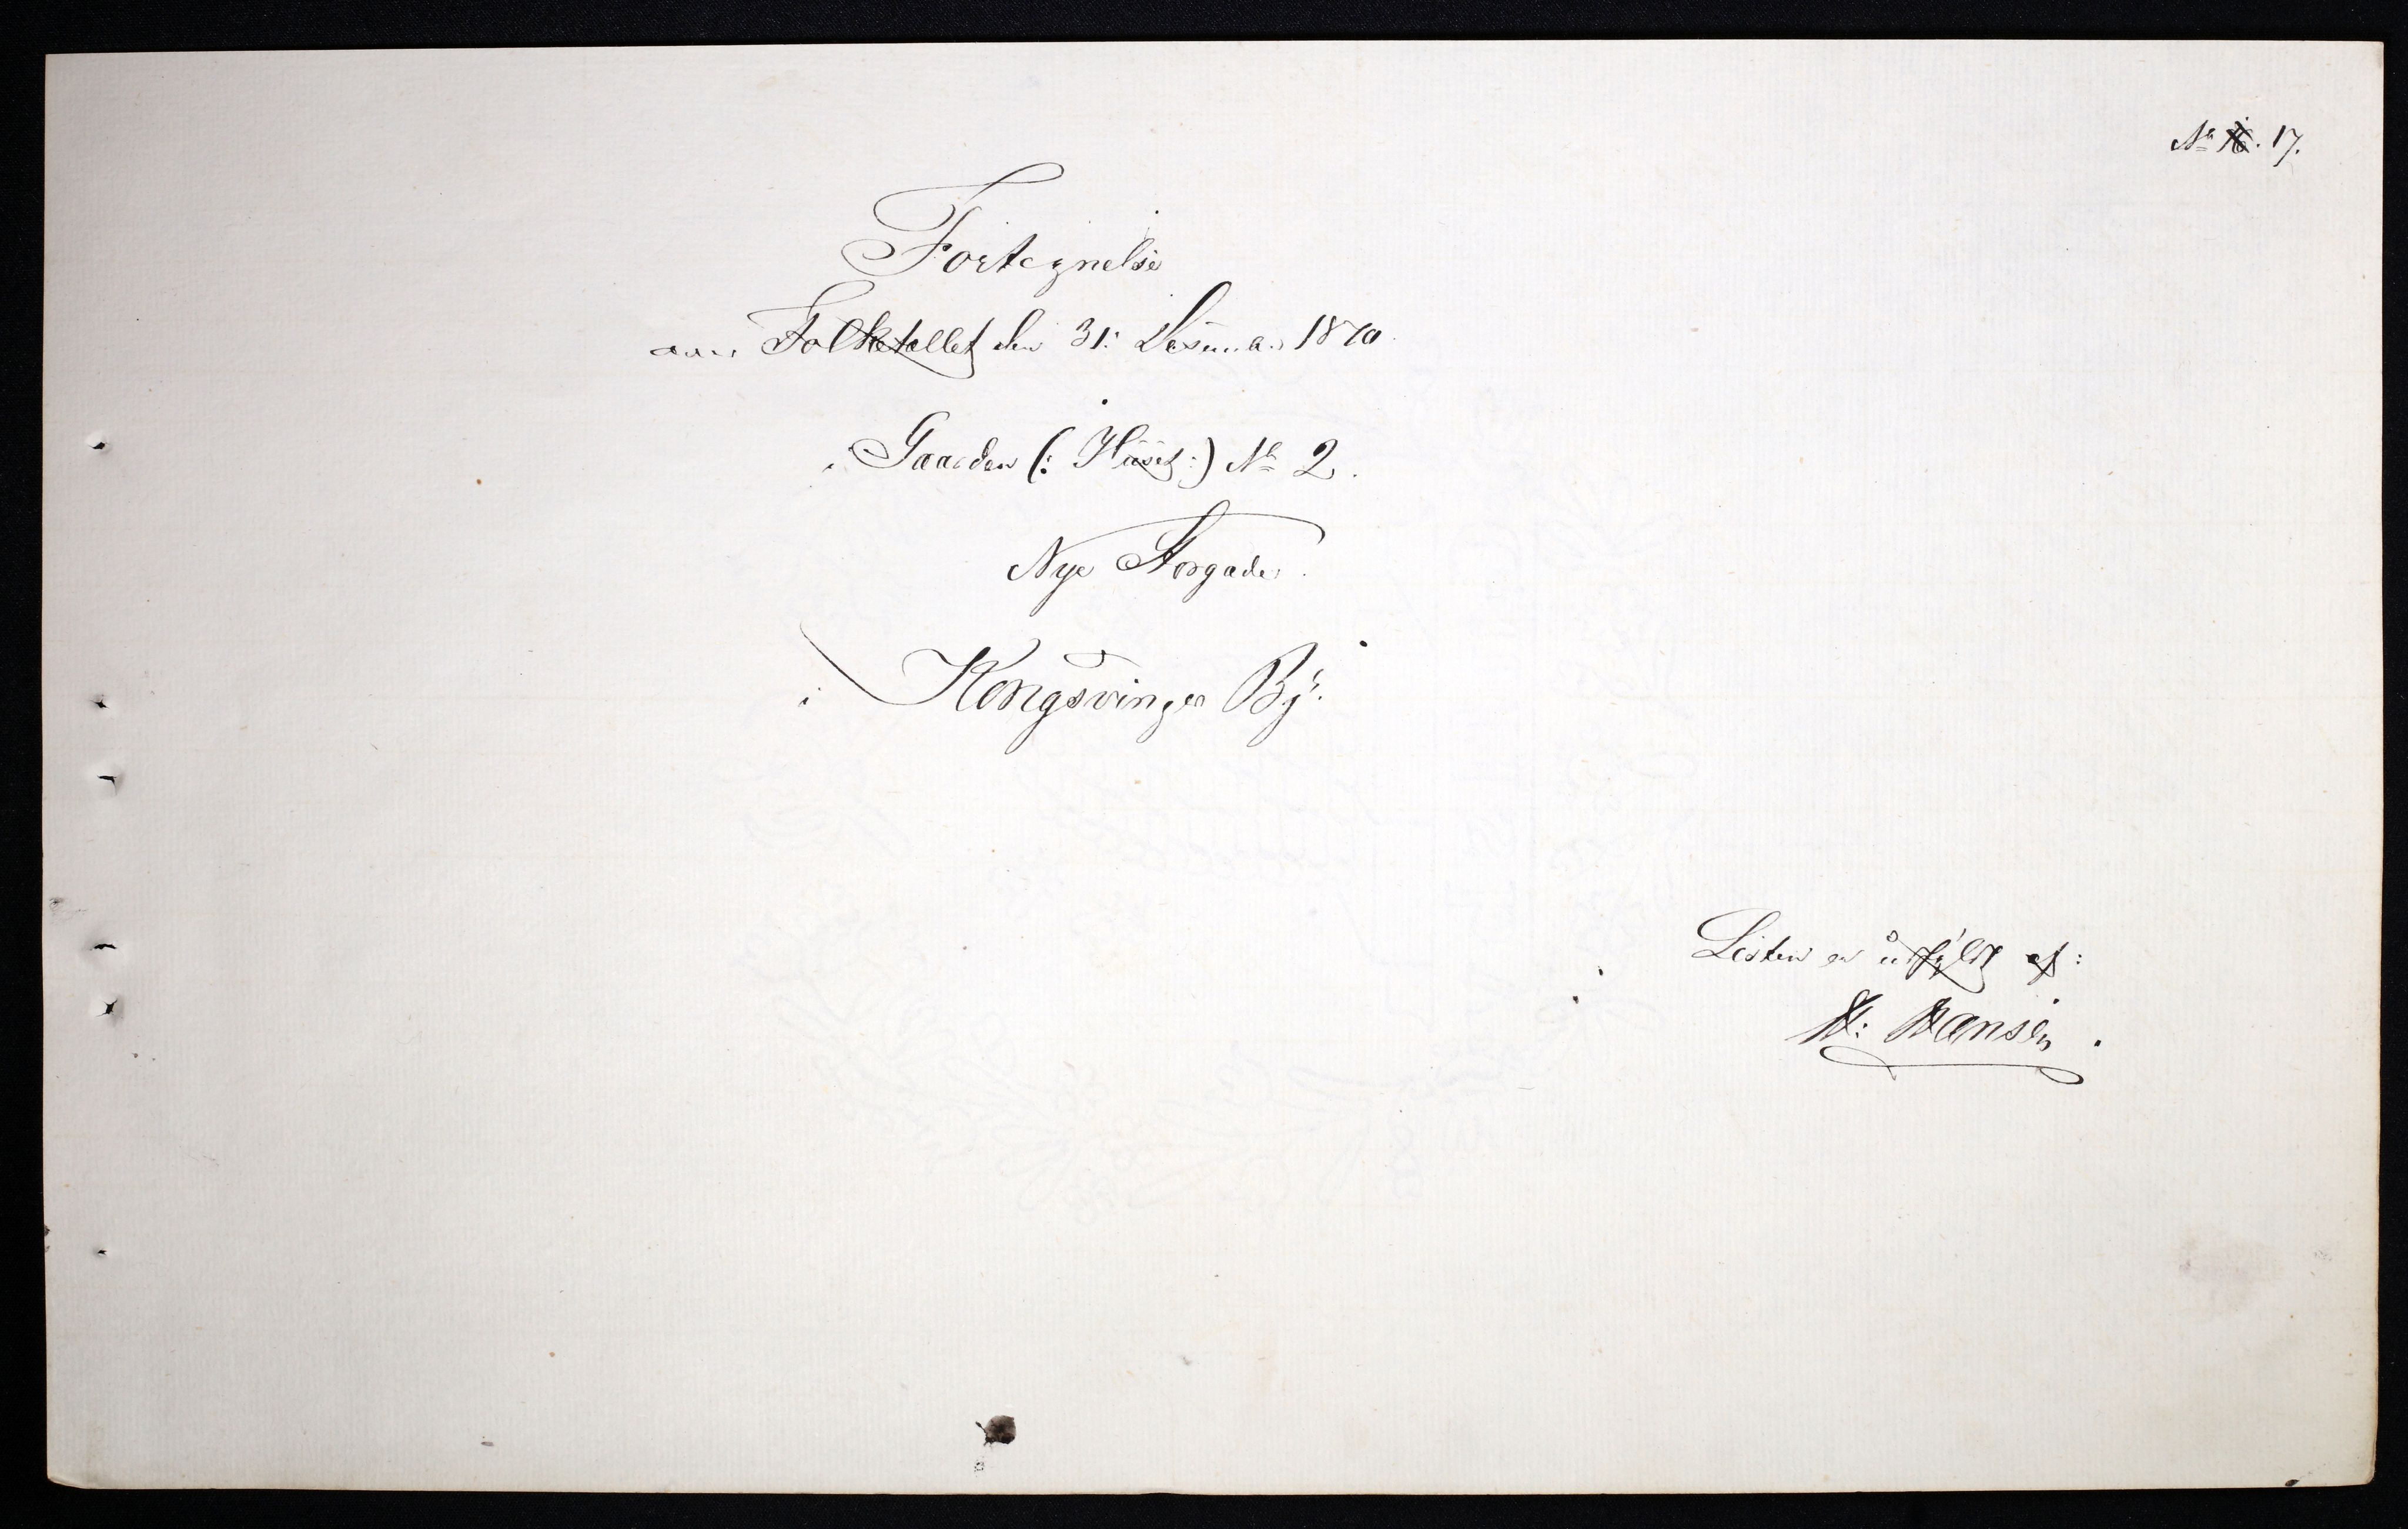 No 16. 17.
Fortegnelse
over Folketallet den 31: Desember 1870.
i Gaarden (: Huset :) No 2.
Nye Storgade.
i Kongsvinger By.
Listen er udfyldt af:
H: Hansen.